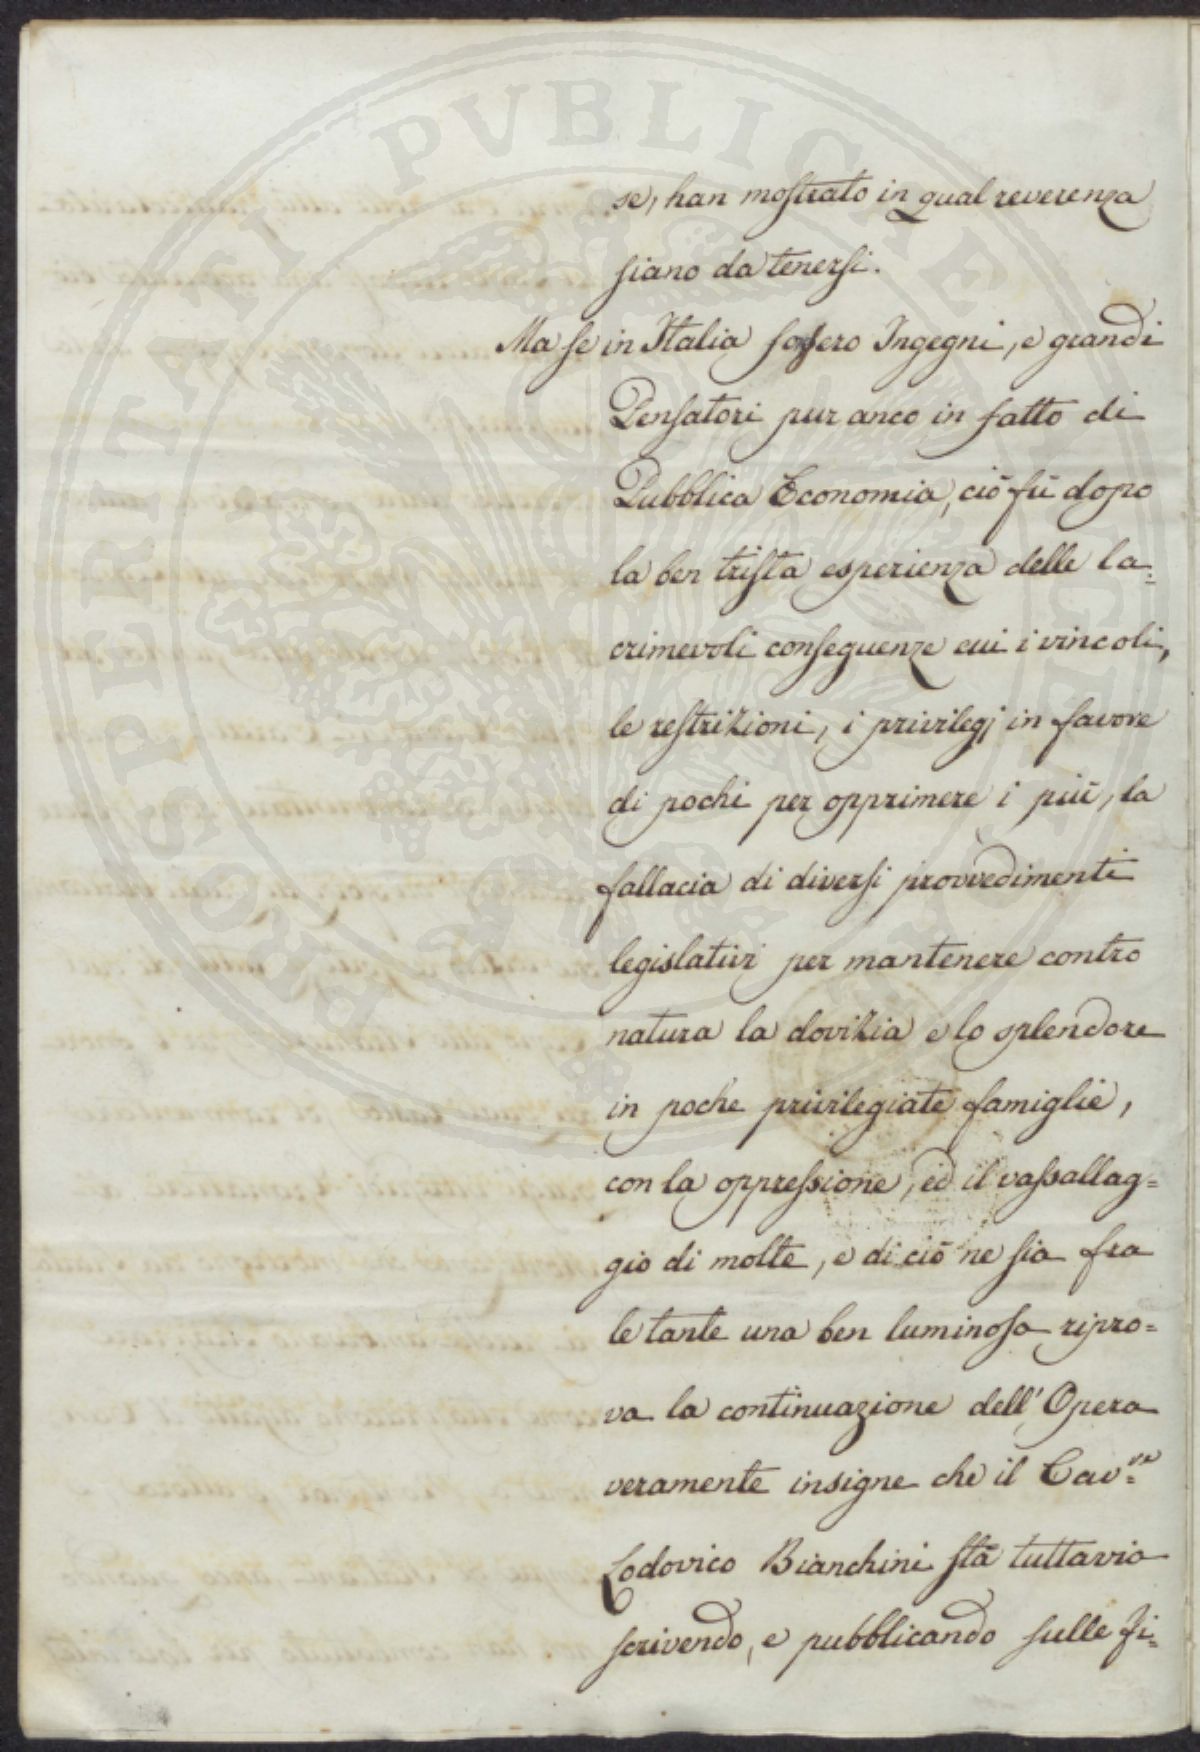 se, han mostrato in qual reverenza
siano da tenersi.
Ma se in Italia fossero Ingegni, e grandi
Pensatori pur anco in fatto di
Pubblica Economia, ciò fù dopo
la ben trista esperienza delle la=
crimevoli conseguenze cui i vincoli,
le restrizioni, i privilegj in favore
di pochi per opprimere i più, la
fallacia di diversi provvedimenti
legislativi per mantenere contro
natura la dovizia e lo splendore
in poche privilegiate famiglie,
con la oppressione, ed il vassallag=
gio di molte, e di ciò ne sia fra
le tante una ben luminosa ripro=
va la continuazione dell'Opera
veramente insigne che il Cav.re
Lodovico Bianchini stà tuttavia
scrivendo, e pubblicando sulle Fi=
PROSPERITATI PVBLICAE AVGENDAE